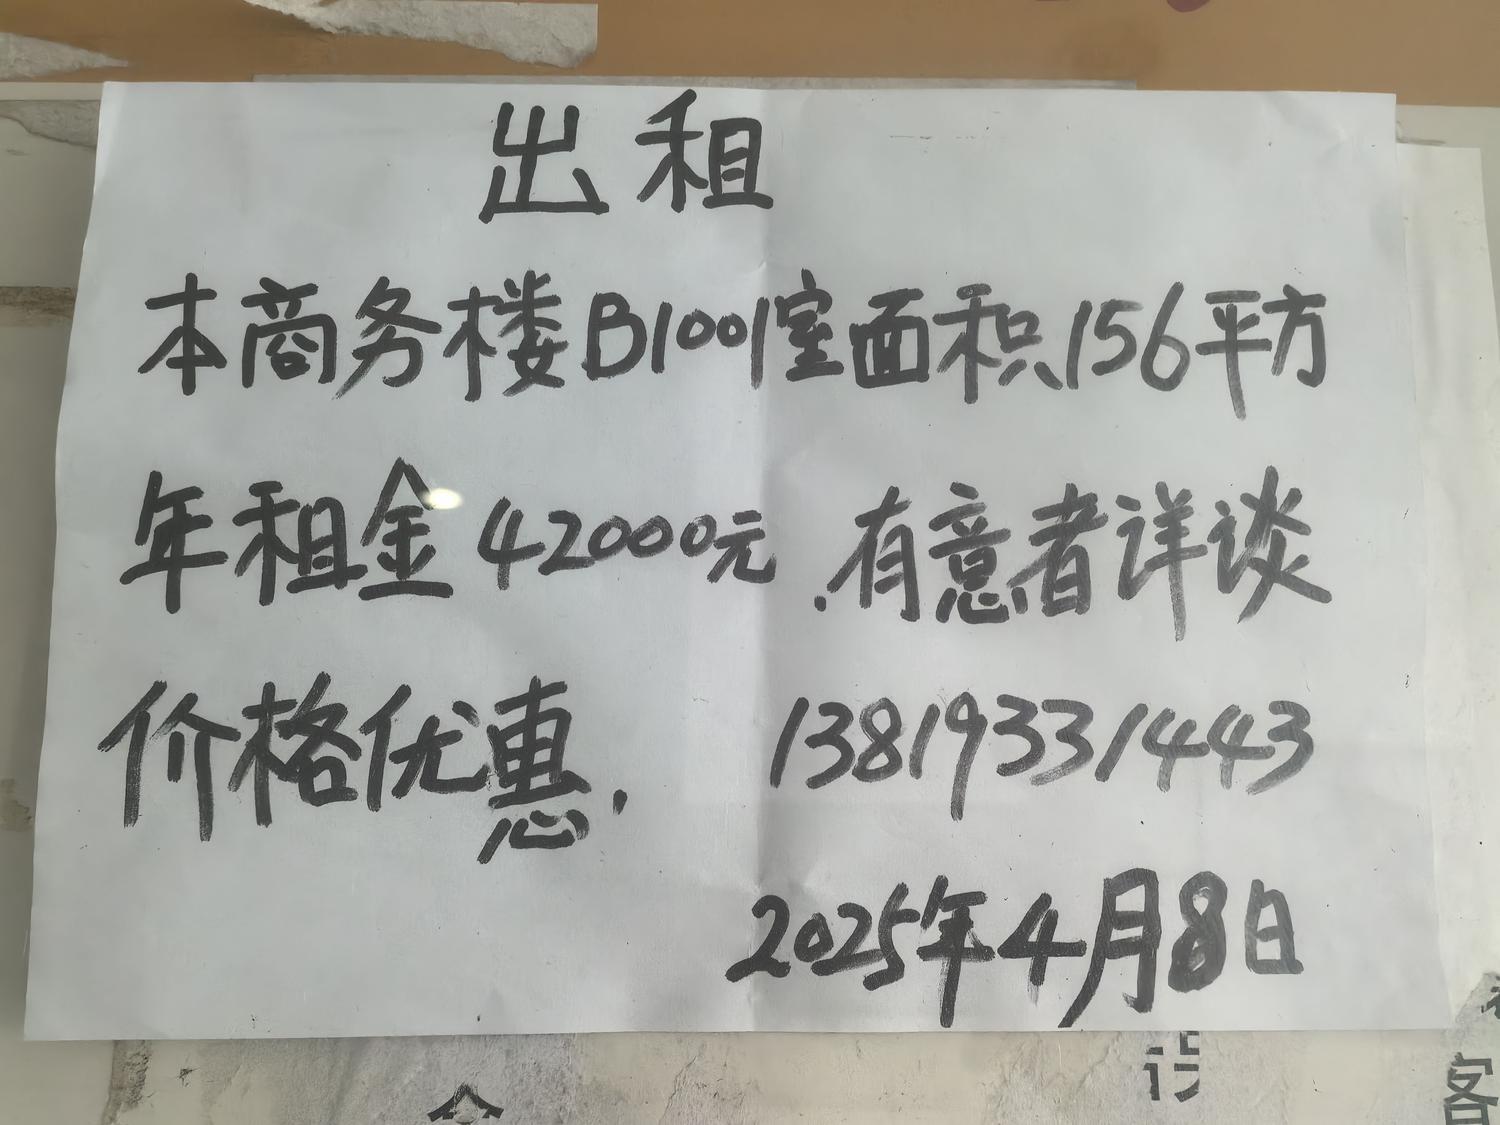 出租
本商务楼B1001室面积156平方
年租金42000元.有意者详谈
价格优惠. 13819331443
2025年4月8日
设
客